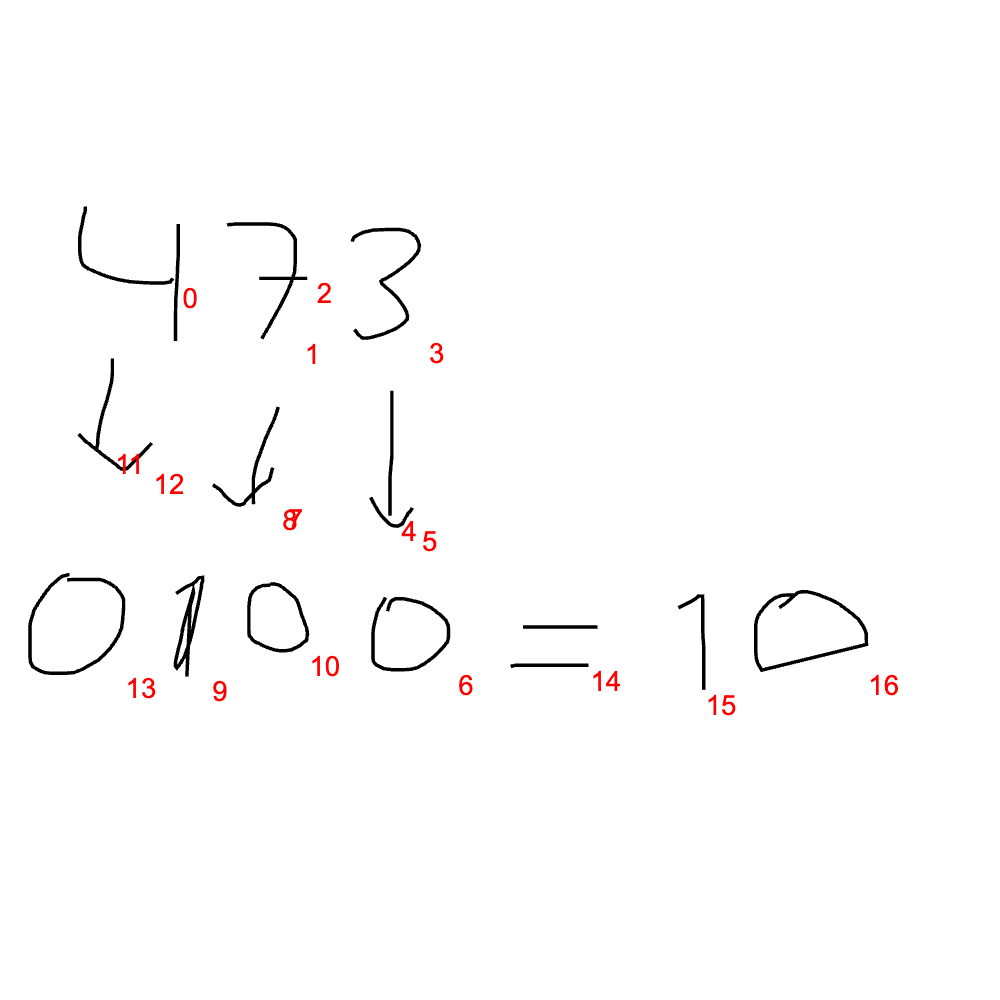 473
0 1
2
3
11
12
8 7
4 5
0100 = 10
13 9 10 6 14 15 16